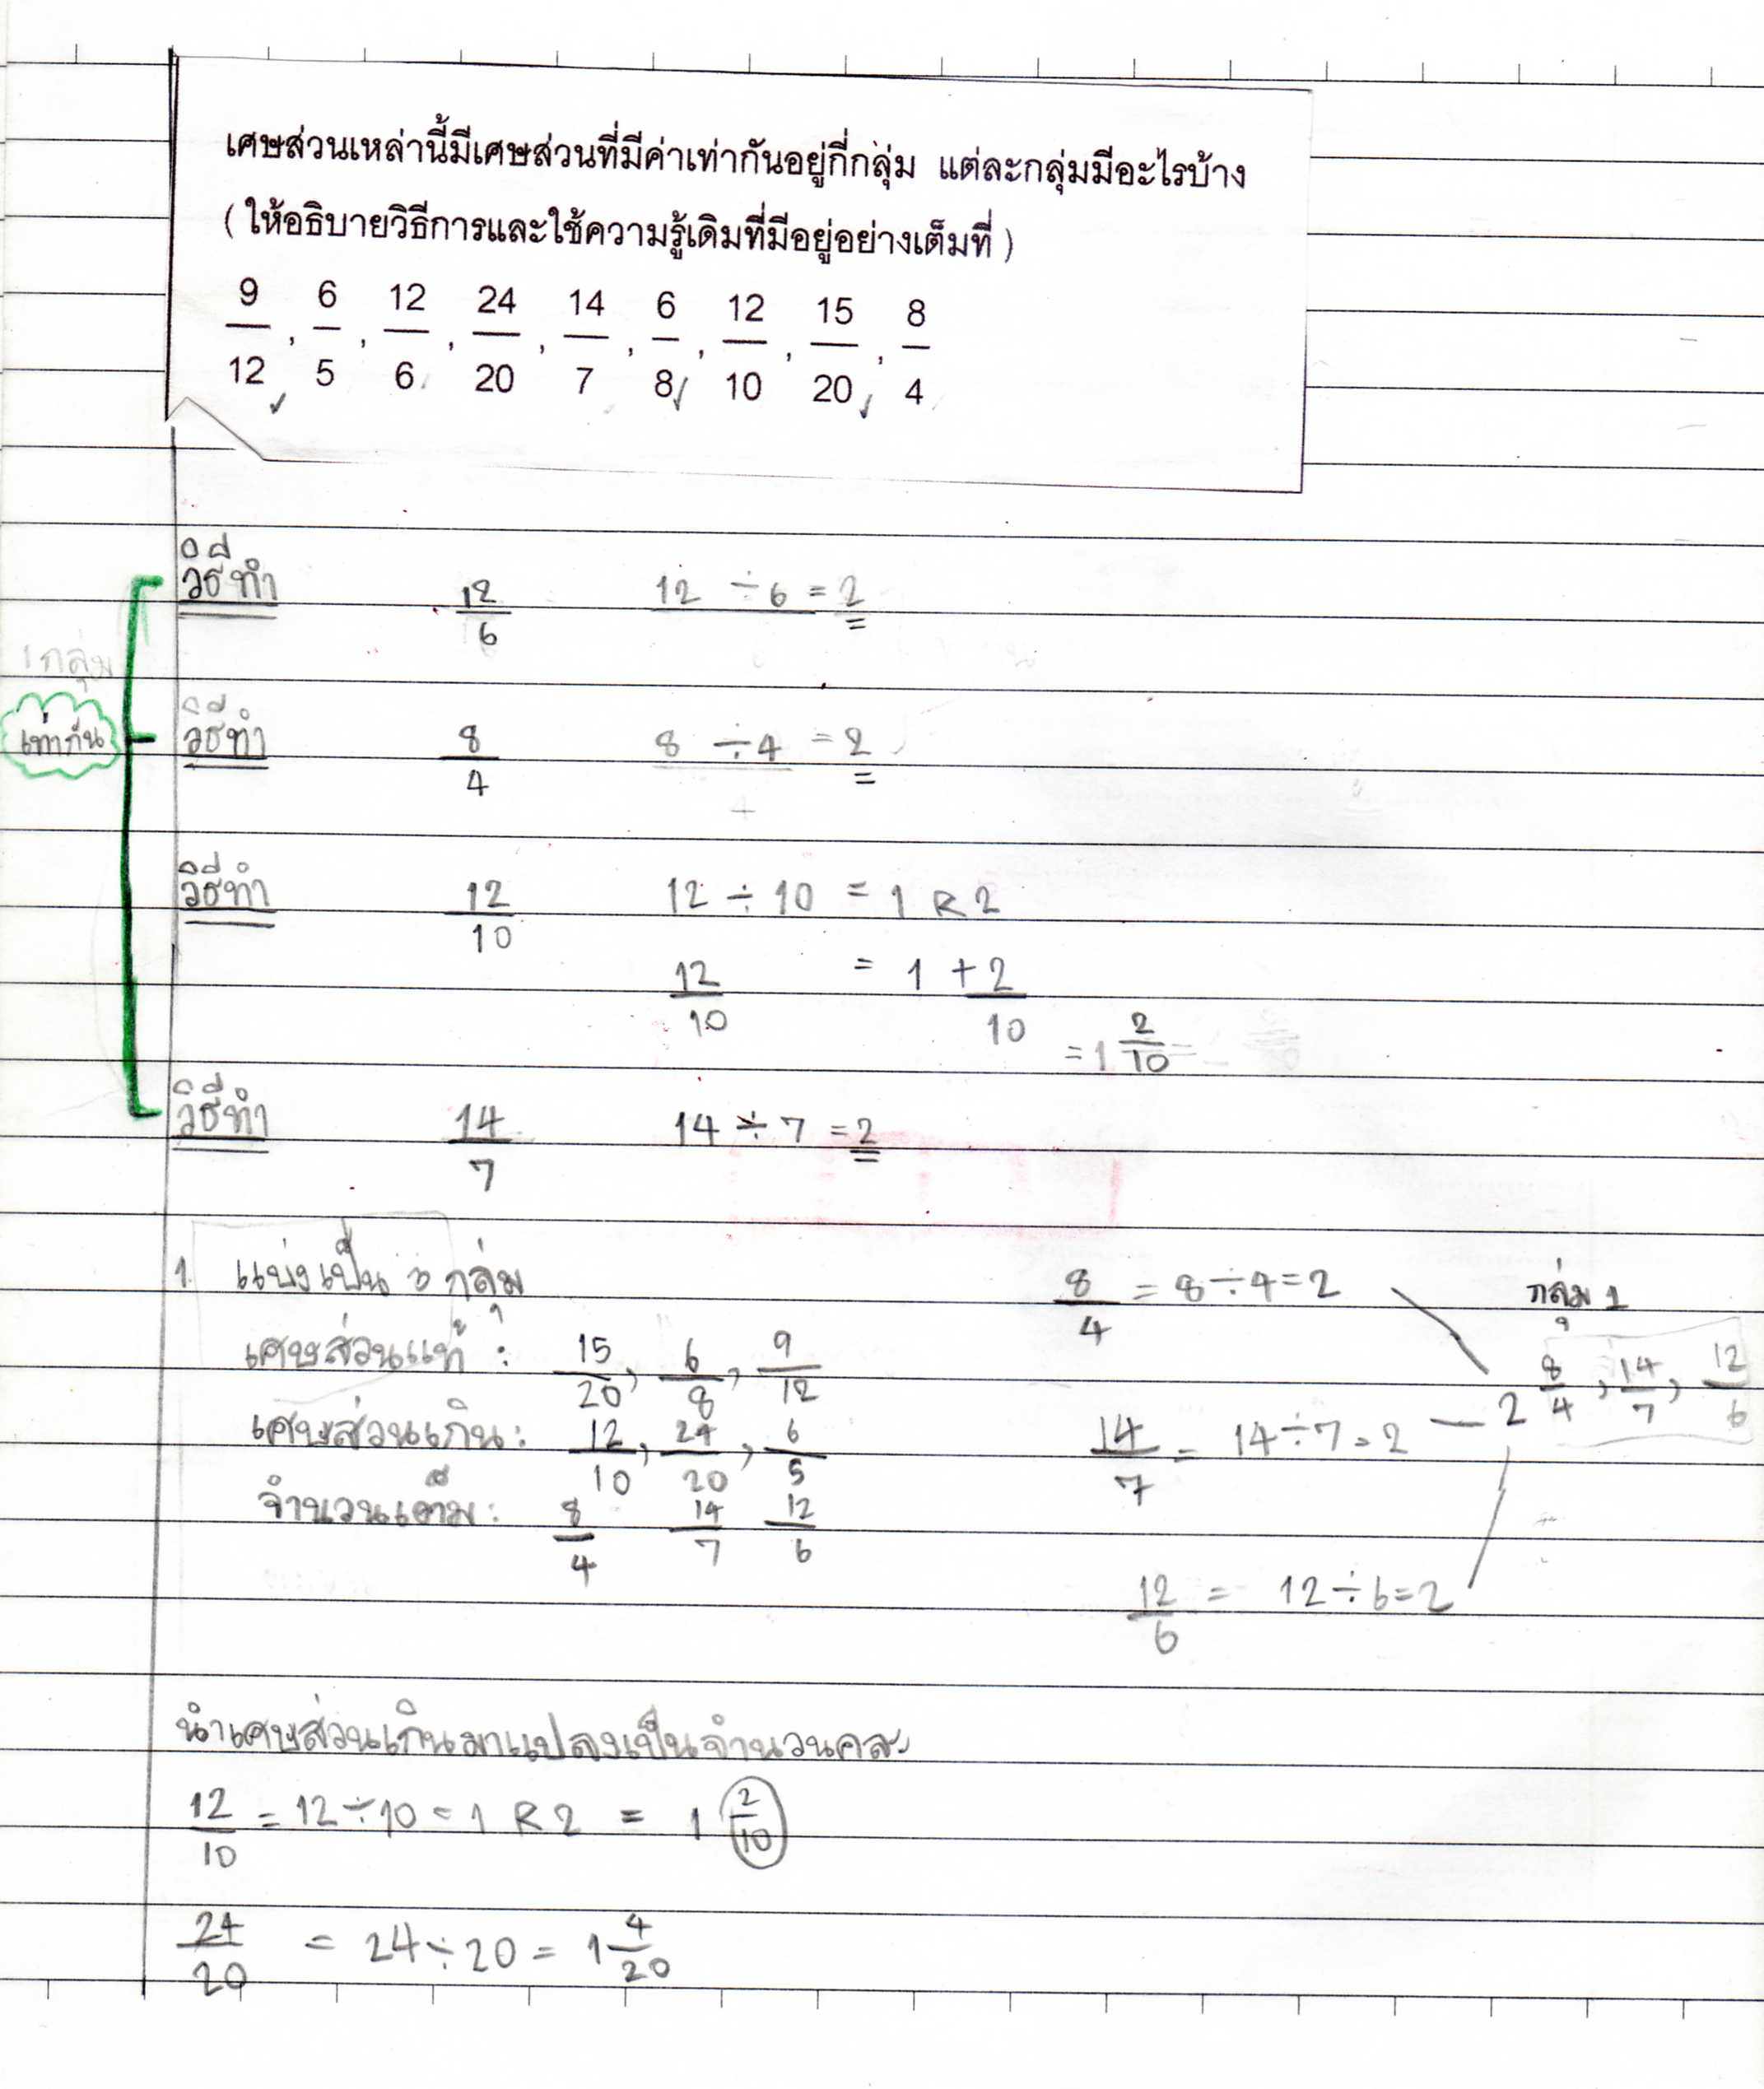 เศษส่วนเหล่านี้มีเศษส่วนที่มีค่าเท่ากันอยู่กี่กลุ่ม แต่ละกลุ่มมีอะไรบ้าง
(ให้อธิบายวิธีการและใช้ความรู้เดิมที่มีอยู่อย่างเต็มที่)
9/12 , 6/5 , 12/6 , 24/20 , 14/7 , 6/8 , 12/10 , 15/20 , 8/4
วิธีทำ 12/6 12 ÷ 6 = 2
1 กลุ่ม
เท่ากัน
วิธีทำ 8/4 8 ÷ 4 = 2
วิธีทำ 12/10 12 ÷ 10 = 1 R 2
12/10 = 1 + 2/10
= 1 2/10
วิธีทำ 14/7 14 ÷ 7 = 2
1. แบ่งเป็น 3 กลุ่ม
เศษส่วนแท้ : 15/20, 6/8, 9/12
เศษส่วนเกิน : 12/10, 24/20, 6/5
จำนวนเต็ม : 8/4 14/7 12/6
8/4 = 8 ÷ 4 = 2
14/7 = 14 ÷ 7 = 2
12/6 = 12 ÷ 6 = 2
กลุ่ม 1
2 8/4, 14/7, 12/6
นำเศษส่วนเกินมาแปลงเป็นจำนวนคละ
12/10 = 12 ÷ 10 = 1 R 2 = 1 2/10
24/20 = 24 ÷ 20 = 1 4/20